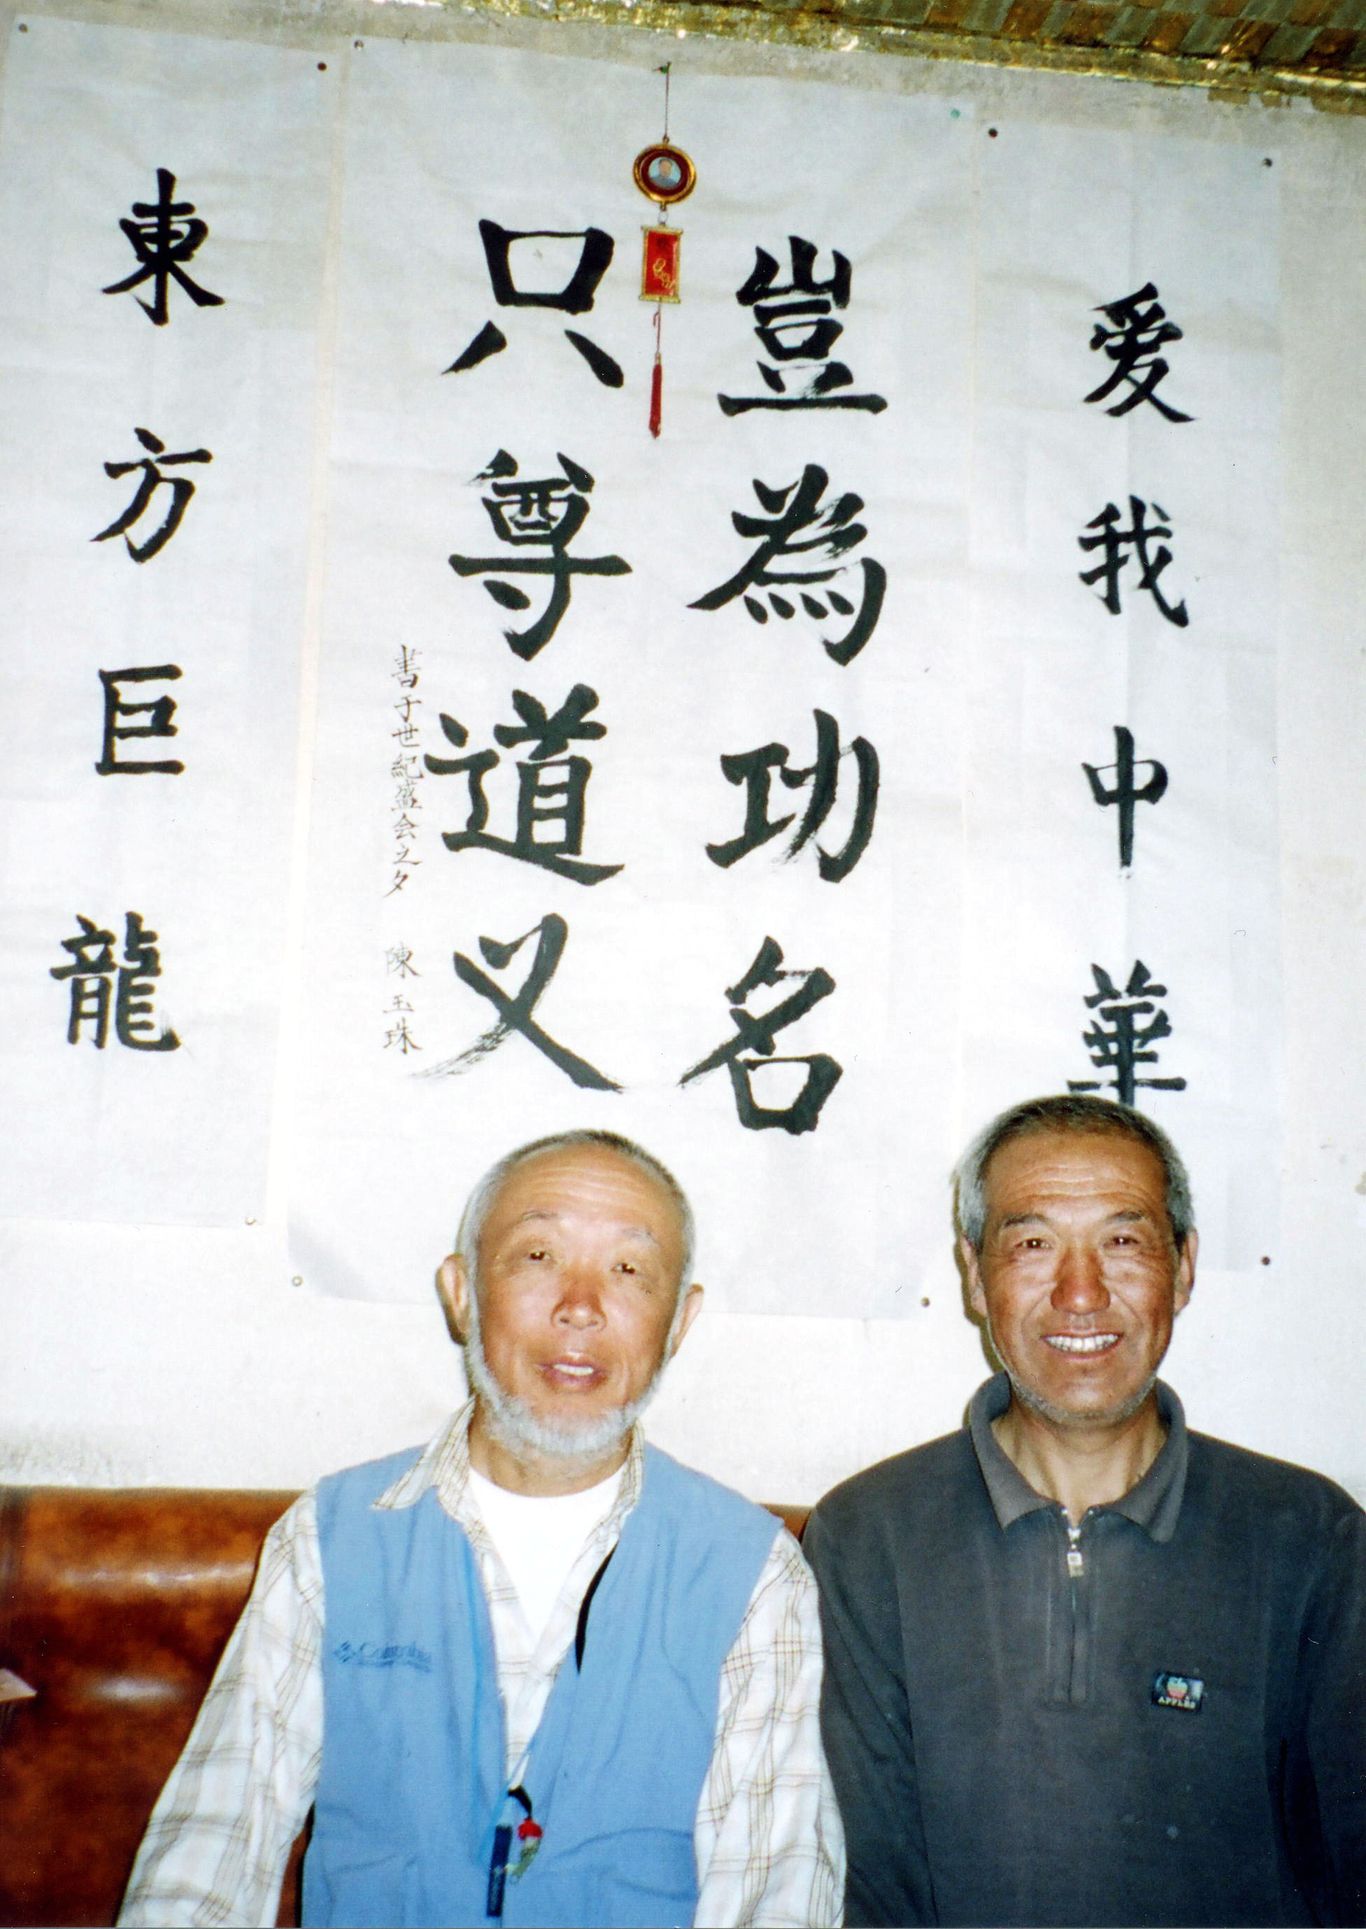 爱我中華
豈為功名
只尊道义
書于世紀盛会之夕 陳玉珠
東方巨龍
Columbia
APPLES